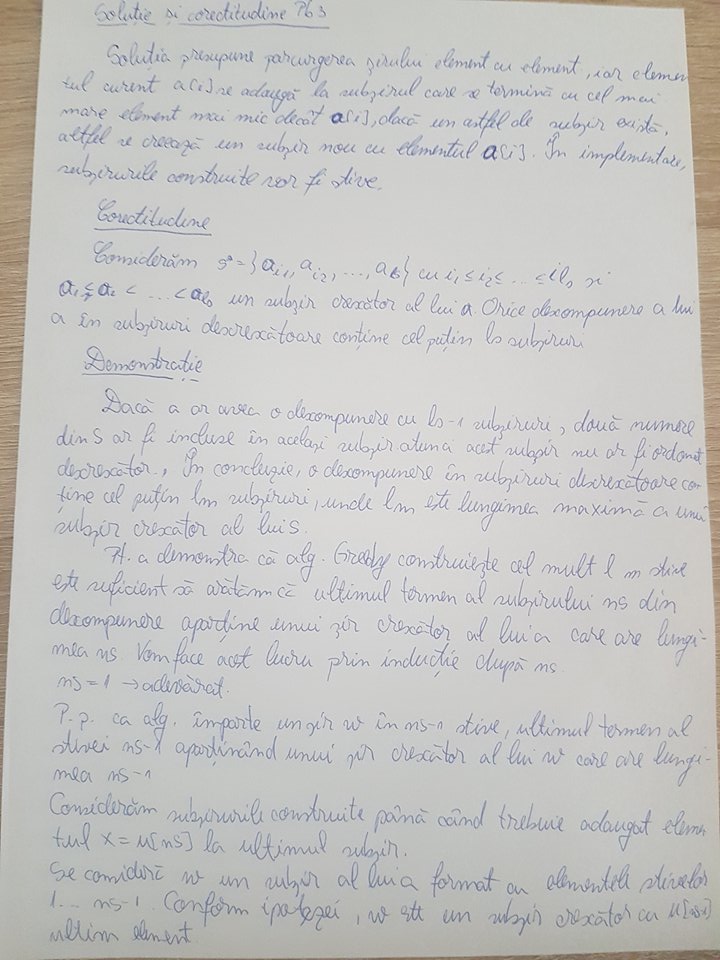 Soluție și corectitudine Pb 3
Soluția presupune parcurgerea șirului element cu element, iar elemen
tul curent a[i] se adaugă la subșirul care se termină cu cel mai
mare element mai mic decât a[i], dacă un astfel de subșir există,
altfel se creează un subșir nou cu elementul a[i]. În implementare,
subșirurile construite vor fi stive.
Corectitudine
Considerăm s = {a i1, a i2, ..., a ls} cu i1 ≤ i2 ≤ ... ≤ ils și
a1 ≤ a2 < ... < als un subșir crescător al lui a. Orice descompunere a lui
a în subșiruri descrescătoare conține cel puțin ls subșiruri
Demonstrație
Dacă a ar avea o descompunere cu ls-1 subșiruri, două numere
din S ar fi incluse în același subșir atunci acest subșir nu ar fi ordonat
descrescător. În concluzie, o descompunere în subșiruri descrescătoare con
ține cel puțin lm subșiruri, unde lm este lungimea maximă a unui
subșir crescător al lui S.
Pt. a demonstra că alg. Greedy construiește cel mult lm stive
este suficient să arătăm că ultimul termen al subșirului ns din
descompunere aparține unui șir crescător al lui a care are lungi-
mea ns. Vom face acest lucru prin inducție după ns.
ns = 1 → adevărat.
P.p. ca alg. împarte un șir w în ns-1 stive, ultimul termen al
stivei ns-1 aparținând unui șir crescător al lui w care are lungi-
mea ns-1
Considerăm subșirurile construite până când trebuie adaugat elemen
tul x = u[ns] la ultimul subșir.
Se consideră w un subșir al lui a format cu elementele stivelor
1... ns-1. Conform ipotezei, w este un subșir crescător cu u[ns-1]
ultim element.